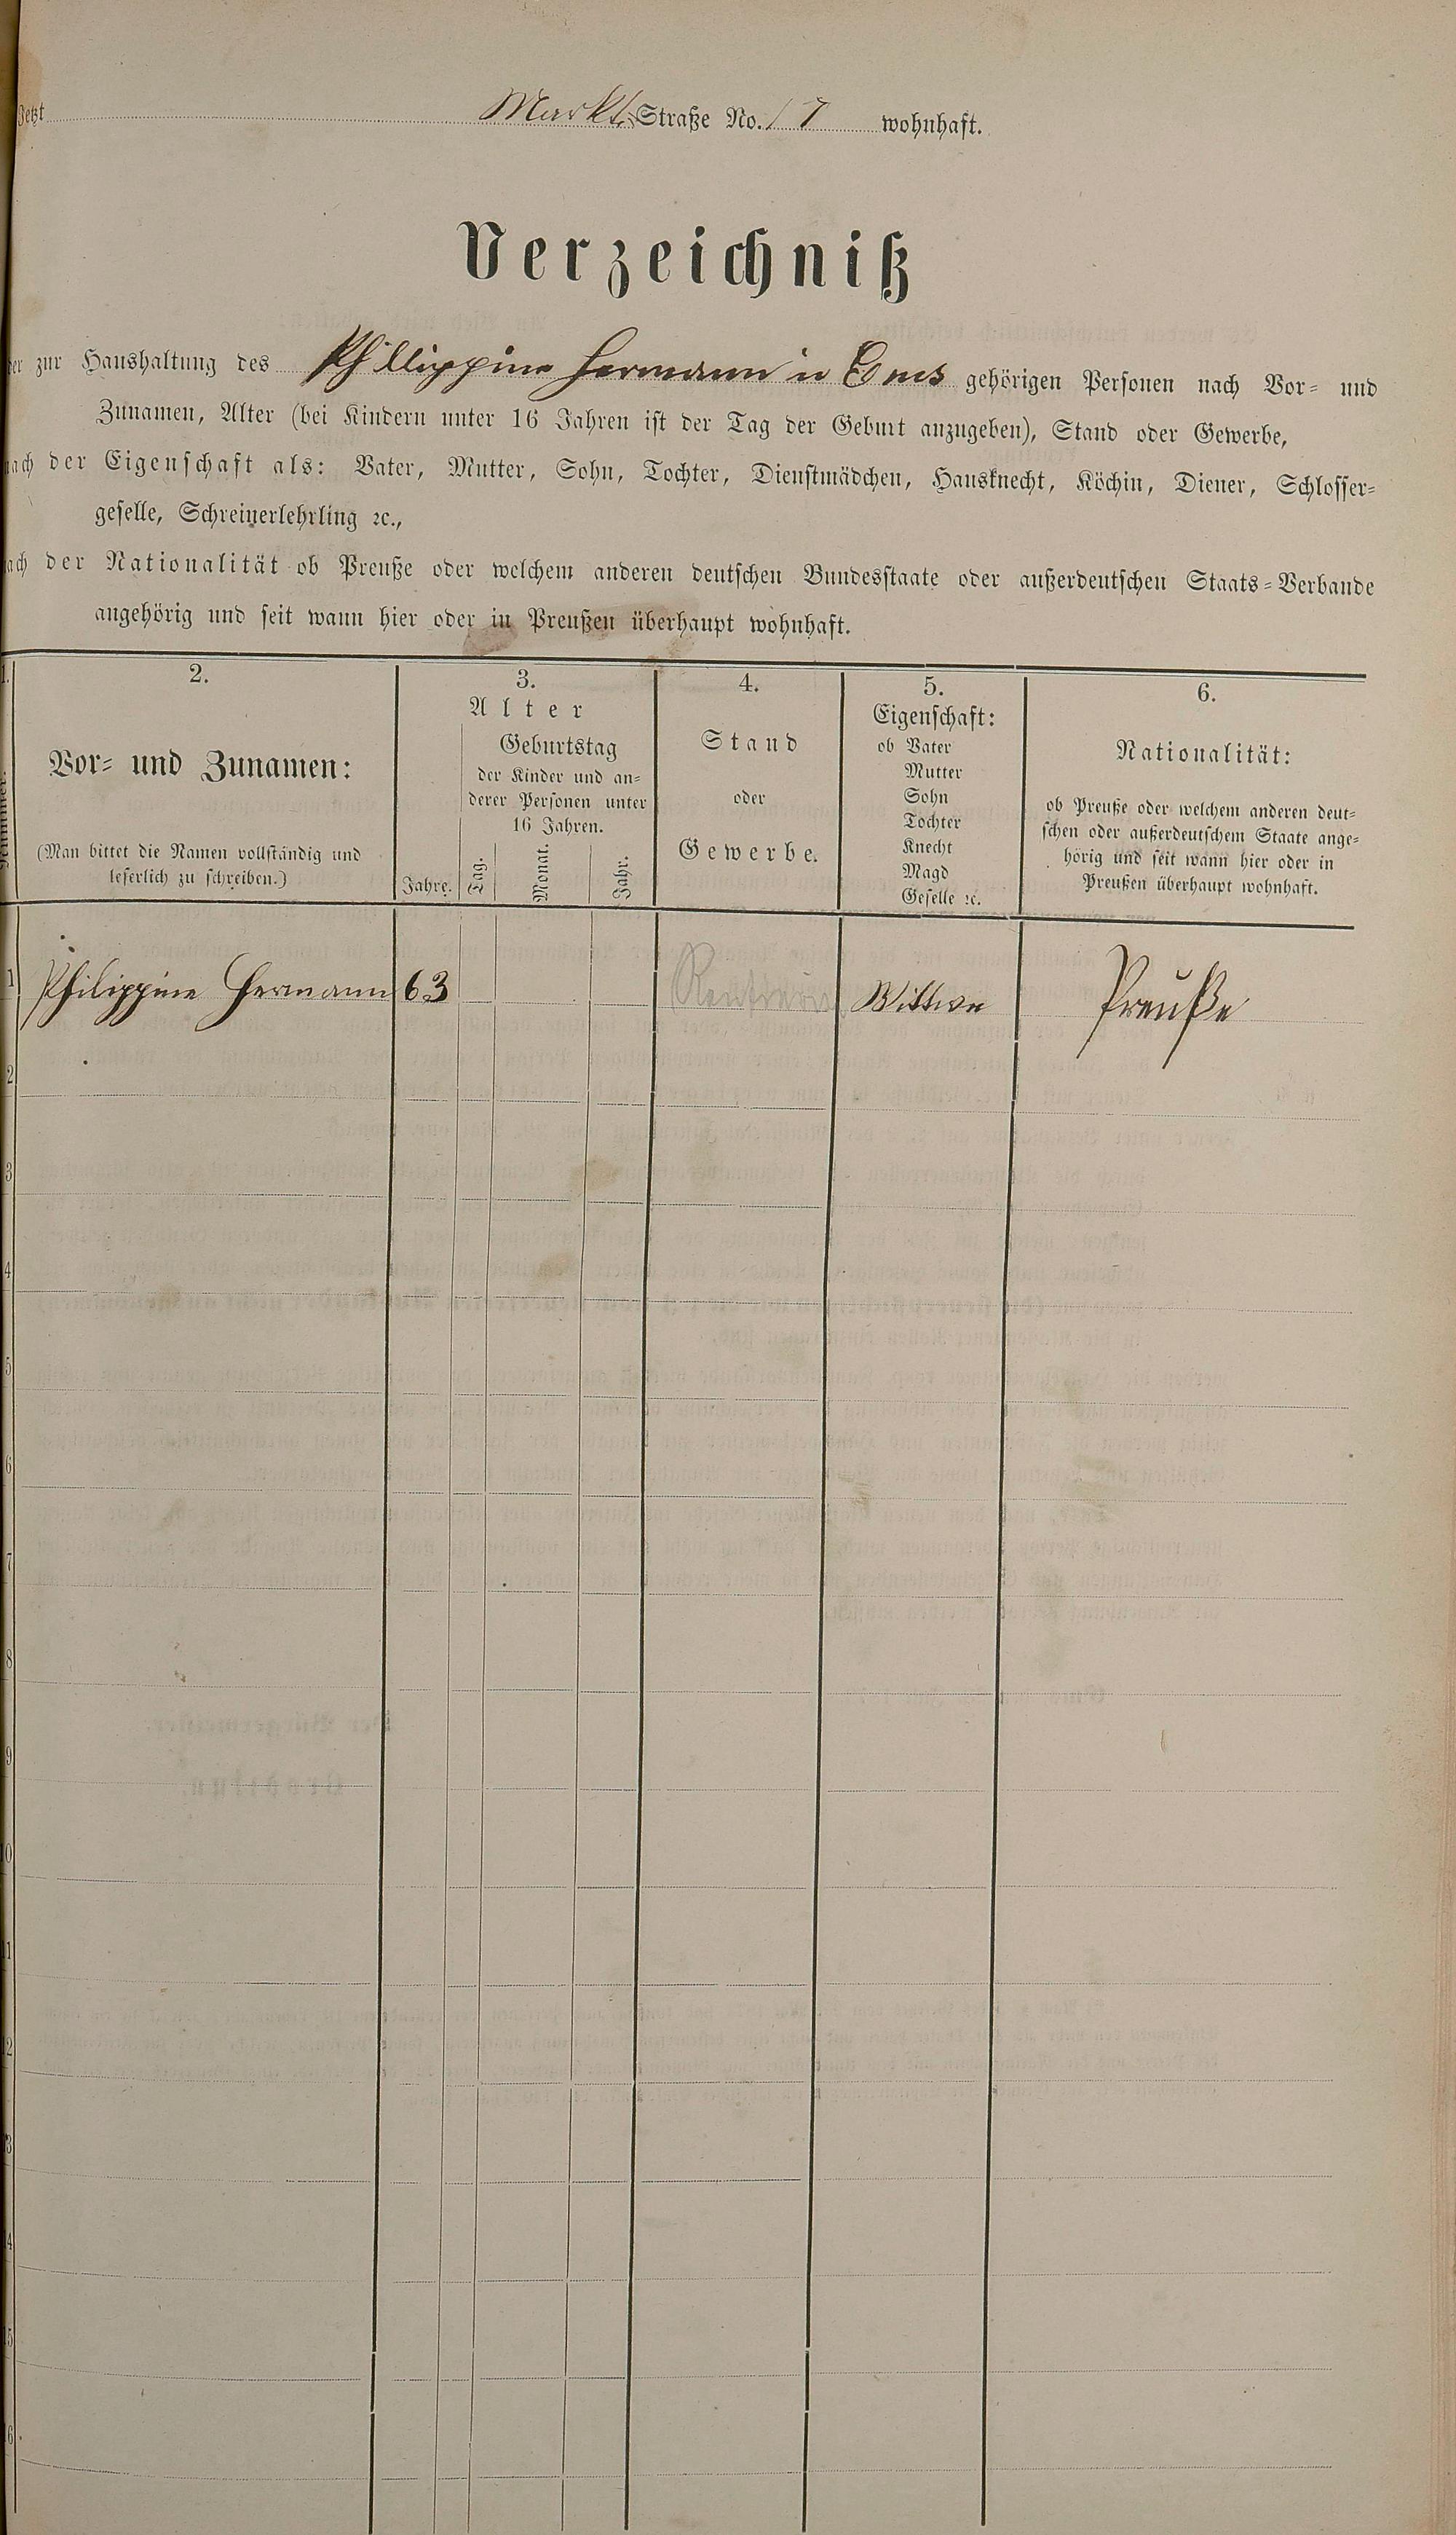 Jetzt Markt Straße No. 17 wohnhaft.
Verzeichniß
der zur Haushaltung des Phillippine Hermann in Ems gehörigen Personen nach Vor- und
Zunamen, Alter (bei Kindern unter 16 Jahren ist der Tag der Geburt anzugeben), Stand oder Gewerbe,
nach der Eigenschaft als: Vater, Mutter, Sohn, Tochter, Dienstmädchen, Hausknecht, Köchin, Diener, Schlosser-
geselle, Schreinerlehrling ꝛc.,
nach der Nationalität ob Preuße oder welchem anderen deutschen Bundesstaate oder außerdeutschen Staats-Verbande
angehörig und seit wann hier oder in Preußen überhaupt wohnhaft.
1.
Nummer.
2.
Vor- und Zunamen:
(Man bittet die Namen vollständig und
leserlich zu schreiben.)
3.
Alter
Geburtstag
der Kinder und an-
derer Personen unter
16 Jahren.
Jahre. Tag. Monat. Jahr.
4.
Stand
oder
Gewerbe.
5.
Eigenschaft:
ob Vater
Mutter
Sohn
Tochter
Knecht
Magd
Geselle ꝛc.
6.
Nationalität:
ob Preuße oder welchem anderen deut-
schen oder außerdeutschem Staate ange-
hörig und seit wann hier oder in
Preußen überhaupt wohnhaft.
1 Philippine Hermann 63 Wittwe Preuße
2
3
4
5
6
7
8
9
10
11
12
13
14
15
16